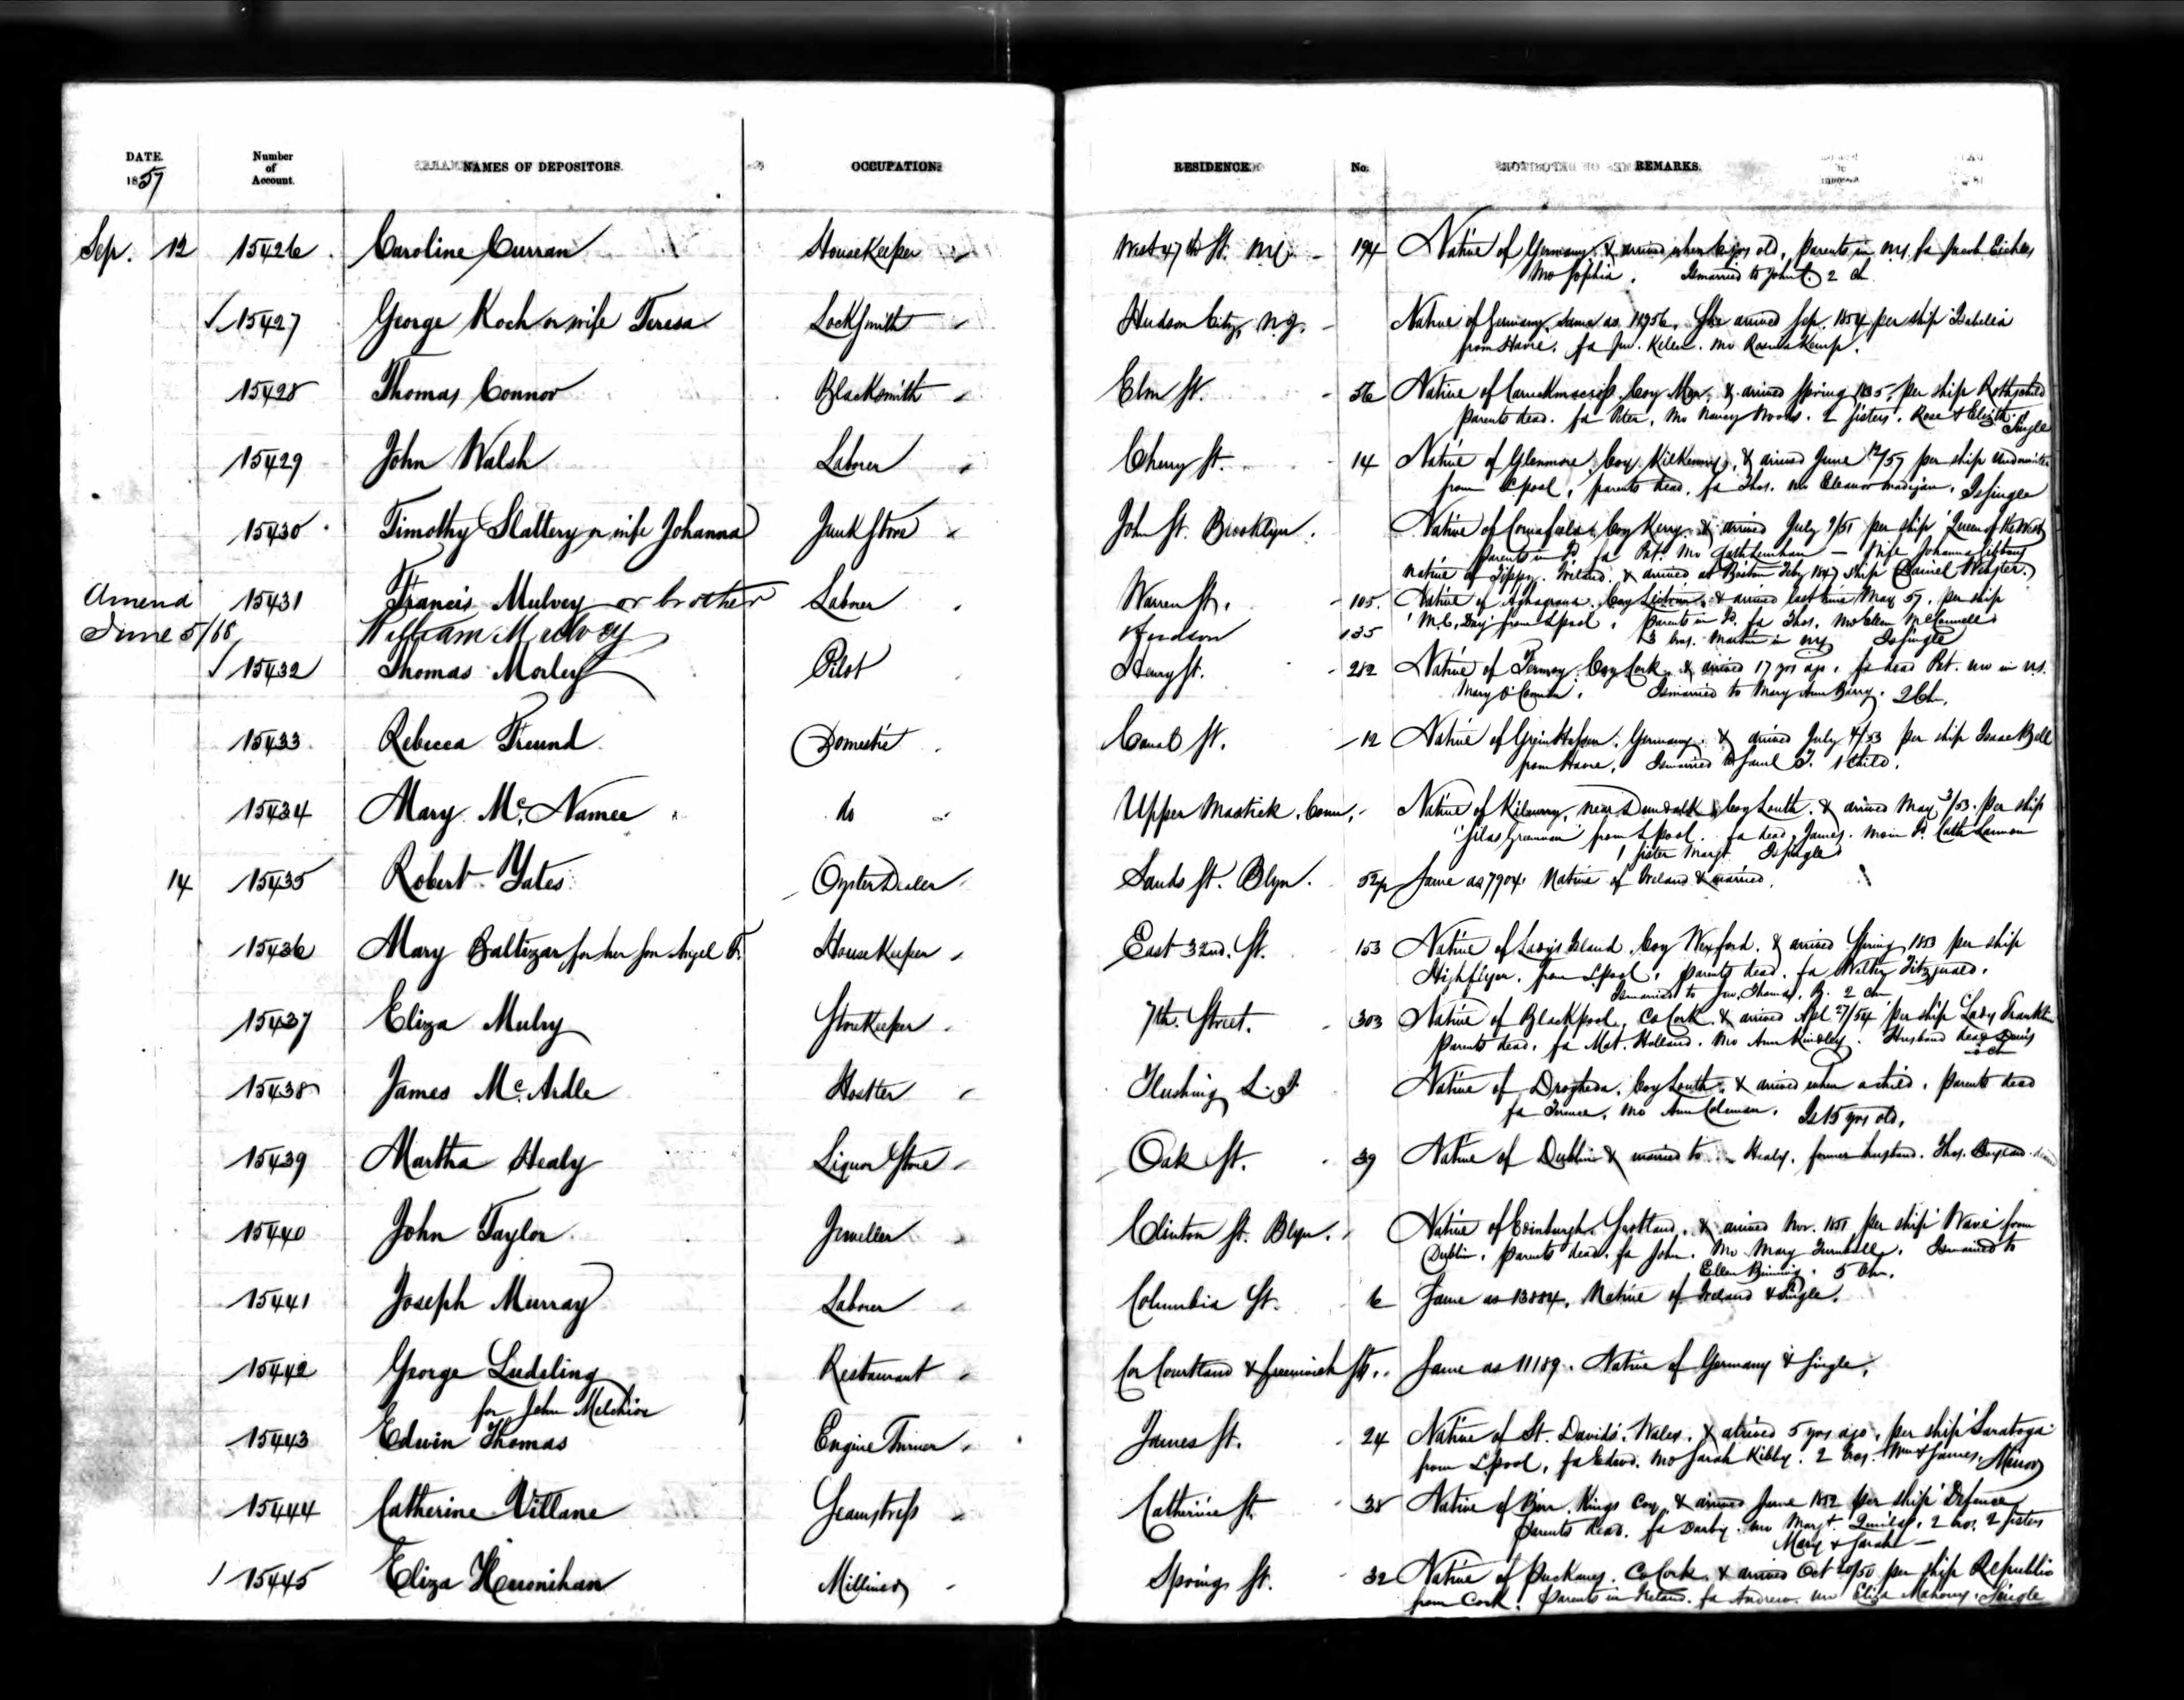 DATE. Number of Account. NAMES OF DEPOSITORS. OCCUPATION. RESIDENCE. No. REMARKS.
1857
Sep. 12 15426 Caroline Curran HouseKeeper West 47th St. 194 Native of Germany & arrived when 6 yrs old, parents in fa Jacob
Mo Sophia. Is married to John C. 2 ch
15427 George Koch or wife Teresa LockSmith Hudson City, N.J. Native of Germany, Same as 11956. She arrived Sep. 1854 per ship Isabella
from Havre. fa Jno. Mo
15428 Thomas Connor BlackSmith Elm St. 56 Native of Coy & arrived Spring 1835 per ship Rothschild
Parents dead. fa Peter, Mo Nancy Woods. 2 sisters. Rose & Elizth Single
15429 John Walsh Laborer Cherry St. 14 Native of Glenmore Coy Kilkenny, & arrived June 12/57 per ship Underwriter
from Lpool, parents dead, fa Thos. Mo Eleanor Madigan. Is single
15430 Timothy Slattery or wife Johanna Junk Store John St. Brooklyn. Native of Coy Kerry & arrived July 9/51 per ship Queen of the West
parents in Id. fa Pat. Mo Cath Lenihan — Wife Johanna Gibbons
Native of Tippy. Ireland. & arrived at Boston Feby 1847 Ship Daniel Webster.
Amend 15431 Francis Mulvey or brother Laborer Warren St. 105. Native of Coy Leitrim & arrived last time May 57. per ship
June 5/68 William Mulvey Hudson 135 "M.C. Day" from Lpool, Parents in Id. fa Thos. Mo Ellen McConnell
3 bros. Martin in NY Is single
15432 Thomas Morley Pilot Henry St. 282 Native of Fermoy. Coy Cork & arrived 17 yrs ago. fa dead Pat. mo in U.S.
Mary O'Connor. Is married to Mary Ann Barry. 2 Ch.
15433 Rebecca Freund Domestic Canal St. 12 Native of Germany. & arrived July 4/53 per ship Isaac Bell
from Havre, Is married to Saml F. 1 child.
15434 Mary McNamee do Upper Conn. Native of near Dundalk Coy Louth. & arrived May 3/53. per ship
"Silas Greenman" from Lpool. fa dead James. Mo in Id. Cath Lennon
1 sister Margt Is single
14 15435 Robert Yates Oyster Dealer Sands St. Blyn. 52½ Same as 7904. Native of Ireland & married.
15436 Mary Baltizar for her son Angel F. HouseKeeper East 32nd. St. 153 Native of Ladys Island Coy Wexford. & arrived Spring 1853 per ship
Highflyer. from Lpool, parents dead. fa Walter Fitzgerald.
Is married to Jno. Thomas. B. 2 ch
15437 Eliza Mulry StoreKeeper 7th. Street. 303 Native of Blackpool. Co Cork. & arrived Apl 27/54 per ship Lady Franklin
Parents dead. fa Mat. Holland. Mo Ann Kindley. Husband dead Denis
no ch
15438 James McArdle Hostler Flushing L.I Native of Drogheda. Coy Louth. & arrived when a child, parents dead
fa Terence, Mo Ann Coleman. Is 15 yrs old.
15439 Martha Healy Liquor Store Oak St. 39 Native of Dublin & married to Healy. former husband. Thos.
15440 John Taylor Jeweller Clinton St. Blyn. Native of Edinburgh. Scotland. & arrived Nov. 1851 per ship Wave from
Dublin. parents dead. fa John. Mo Mary Turnbull. Is married to
Ellen Binning. 5 Ch.
15441 Joseph Murray Laborer Columbia St. 6 Same as 13884. Native of Ireland & Single.
15442 George Ludeling Restaurant Cor Courtland & Greenwich Sts. Same as 11189. Native of Germany & single.
for John Melchior
15443 Edwin Thomas Engine Turner James St. 24 Native of St. David's. Wales. & arrived 5 yrs ago, per ship Saratoga
from Lpool, fa Edwd. Mo Sarah Kibby. 2 bros. Wm & James. Minor
15444 Catherine Villane Seamstress Catherine St. 38 Native of Birr Kings Coy & arrived June 1852 per ship Defence
parents dead. fa Darby. mo Margt. 2 bros. 2 sisters
Mary & Sarah —
15445 Eliza Heronihan Milliner Spring St. 32 Native of Co Cork. & arrived Oct 20/50 per ship Republic
from Cork. Parents in Ireland. fa Andrew. mo Eliza Mahony. Single